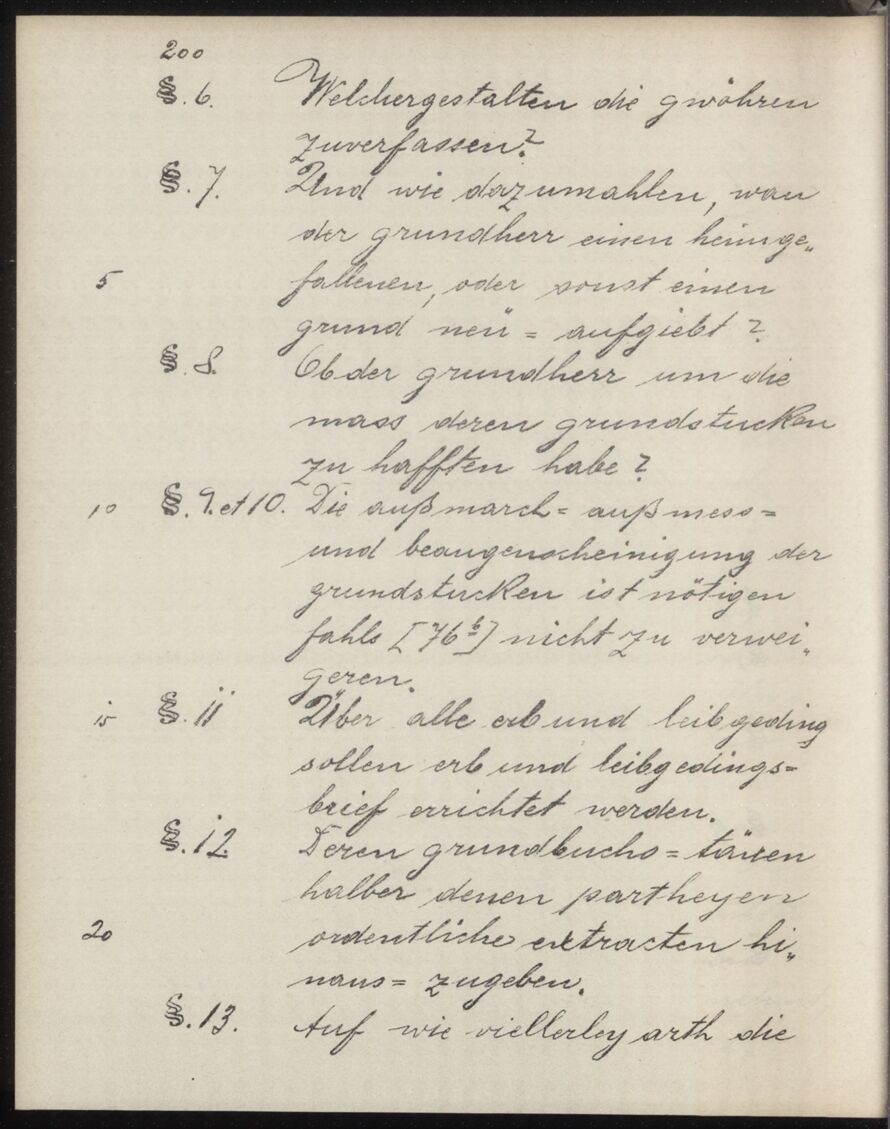 200
§. 6. Welchergestalten die gwöhren
zuverfassen?
§. 7. Und wie dazumahlen, wan
der grundherr einen heimge„
5 fallenen, oder sonst einen
grund neü = aufgiebt?
§. 8. Ob der grundherr um die
mass deren grundstucken
zu hafften habe?
10 §. 9. et 10. Die außmarch= außmess=
und beaugenscheinigung der
grundstucken ist nötigen
fahls [76b] nicht zu verwei„
geren.
15 §. ii Über alle erb und leibgeding
sollen erb und leibgedings=
brief errichtet werden.
§. i2. Deren grundbuchs = täxen
halber denen partheyen
20 ordentliche extracten hi„
naus= zugeben.
§. 13. Auf wie viellerley arth die